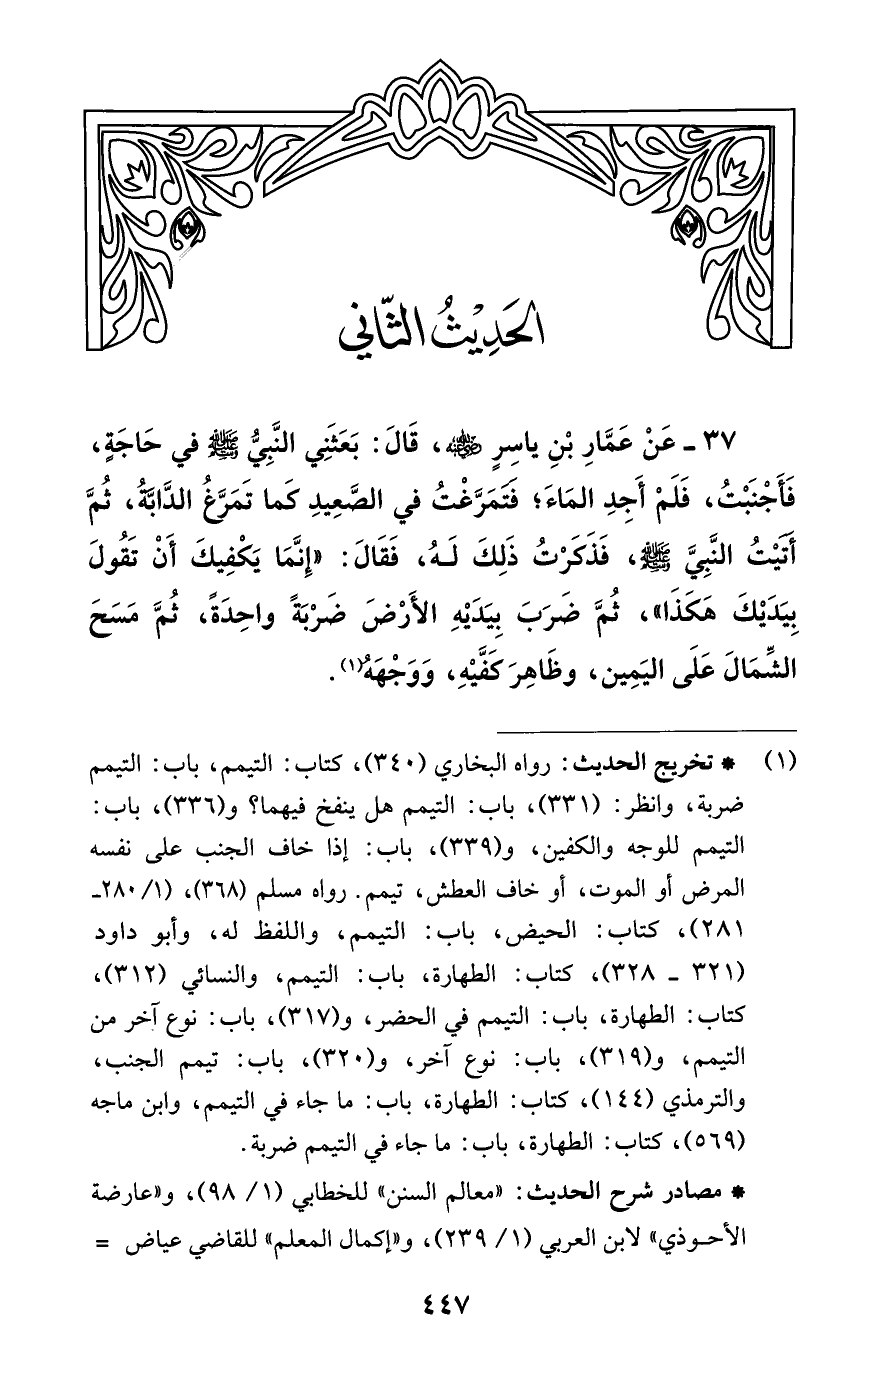 الحَدِيْثُ الثَّاني
٣٧ ـ عَنْ عَمَّارِ بْنِ ياسِرٍ ﵁، قَالَ: بَعَثَنِي النَّبِيُّ ﷺ في حَاجَةٍ،
فَأَجْنَبْتُ، فَلَمْ أَجِدِ المَاءَ؛ فَتَمَرَّغْتُ في الصَّعِيدِ كَما تَمَرَّغُ الدَّابَّةُ، ثُمَّ
أَتَيْتُ النَّبِيَّ ﷺ، فَذَكَرْتُ ذَلِكَ لَـهُ، فَقَالَ: «إِنَّمَا يَكْفِيكَ أَنْ تَقُولَ
بِيَدَيْكَ هَكَذَا»، ثُمَّ ضَرَبَ بِيَدَيْهِ الأَرْضَ ضَرْبَةً واحِدَةً، ثُمَّ مَسَحَ
الشِّمَالَ عَلَى اليَمِين، وظَاهِرَ كَفَّيْهِ، وَوَجْهَهُ(١).
(١) * تخريج الحديث: رواه البخاري (٣٤٠)، كتاب: التيمم، باب: التيمم
ضربة، وانظر: (٣٣١)، باب: التيمم هل ينفخ فيهما؟ و(٣٣٦)، باب:
التيمم للوجه والكفين، و(٣٣٩)، باب: إذا خاف الجنب على نفسه
المرض أو الموت، أو خاف العطش، تيمم. رواه مسلم (٣٦٨)، (١/ ٢٨٠ـ
٢٨١)، كتاب: الحيض، باب: التيمم، واللفظ له، وأبو داود
(٣٢١ ـ ٣٢٨)، كتاب: الطهارة، باب: التيمم، والنسائي (٣١٢)،
كتاب: الطهارة، باب: التيمم في الحضر، و(٣١٧)، باب: نوع آخر من
التيمم، و(٣١٩)، باب: نوع آخر، و(٣٢٠)، باب: تيمم الجنب،
والترمذي (١٤٤)، كتاب: الطهارة، باب: ما جاء في التيمم، وابن ماجه
(٥٦٩)، كتاب: الطهارة، باب: ما جاء في التيمم ضربة.
* مصادر شرح الحديث: «معالم السنن» للخطابي (١/ ٩٨)، و«عارضة
الأحـوذي» لابن العربي (١/ ٢٣٩)، و«إكمال المعلم» للقاضي عياض =
٤٤٧